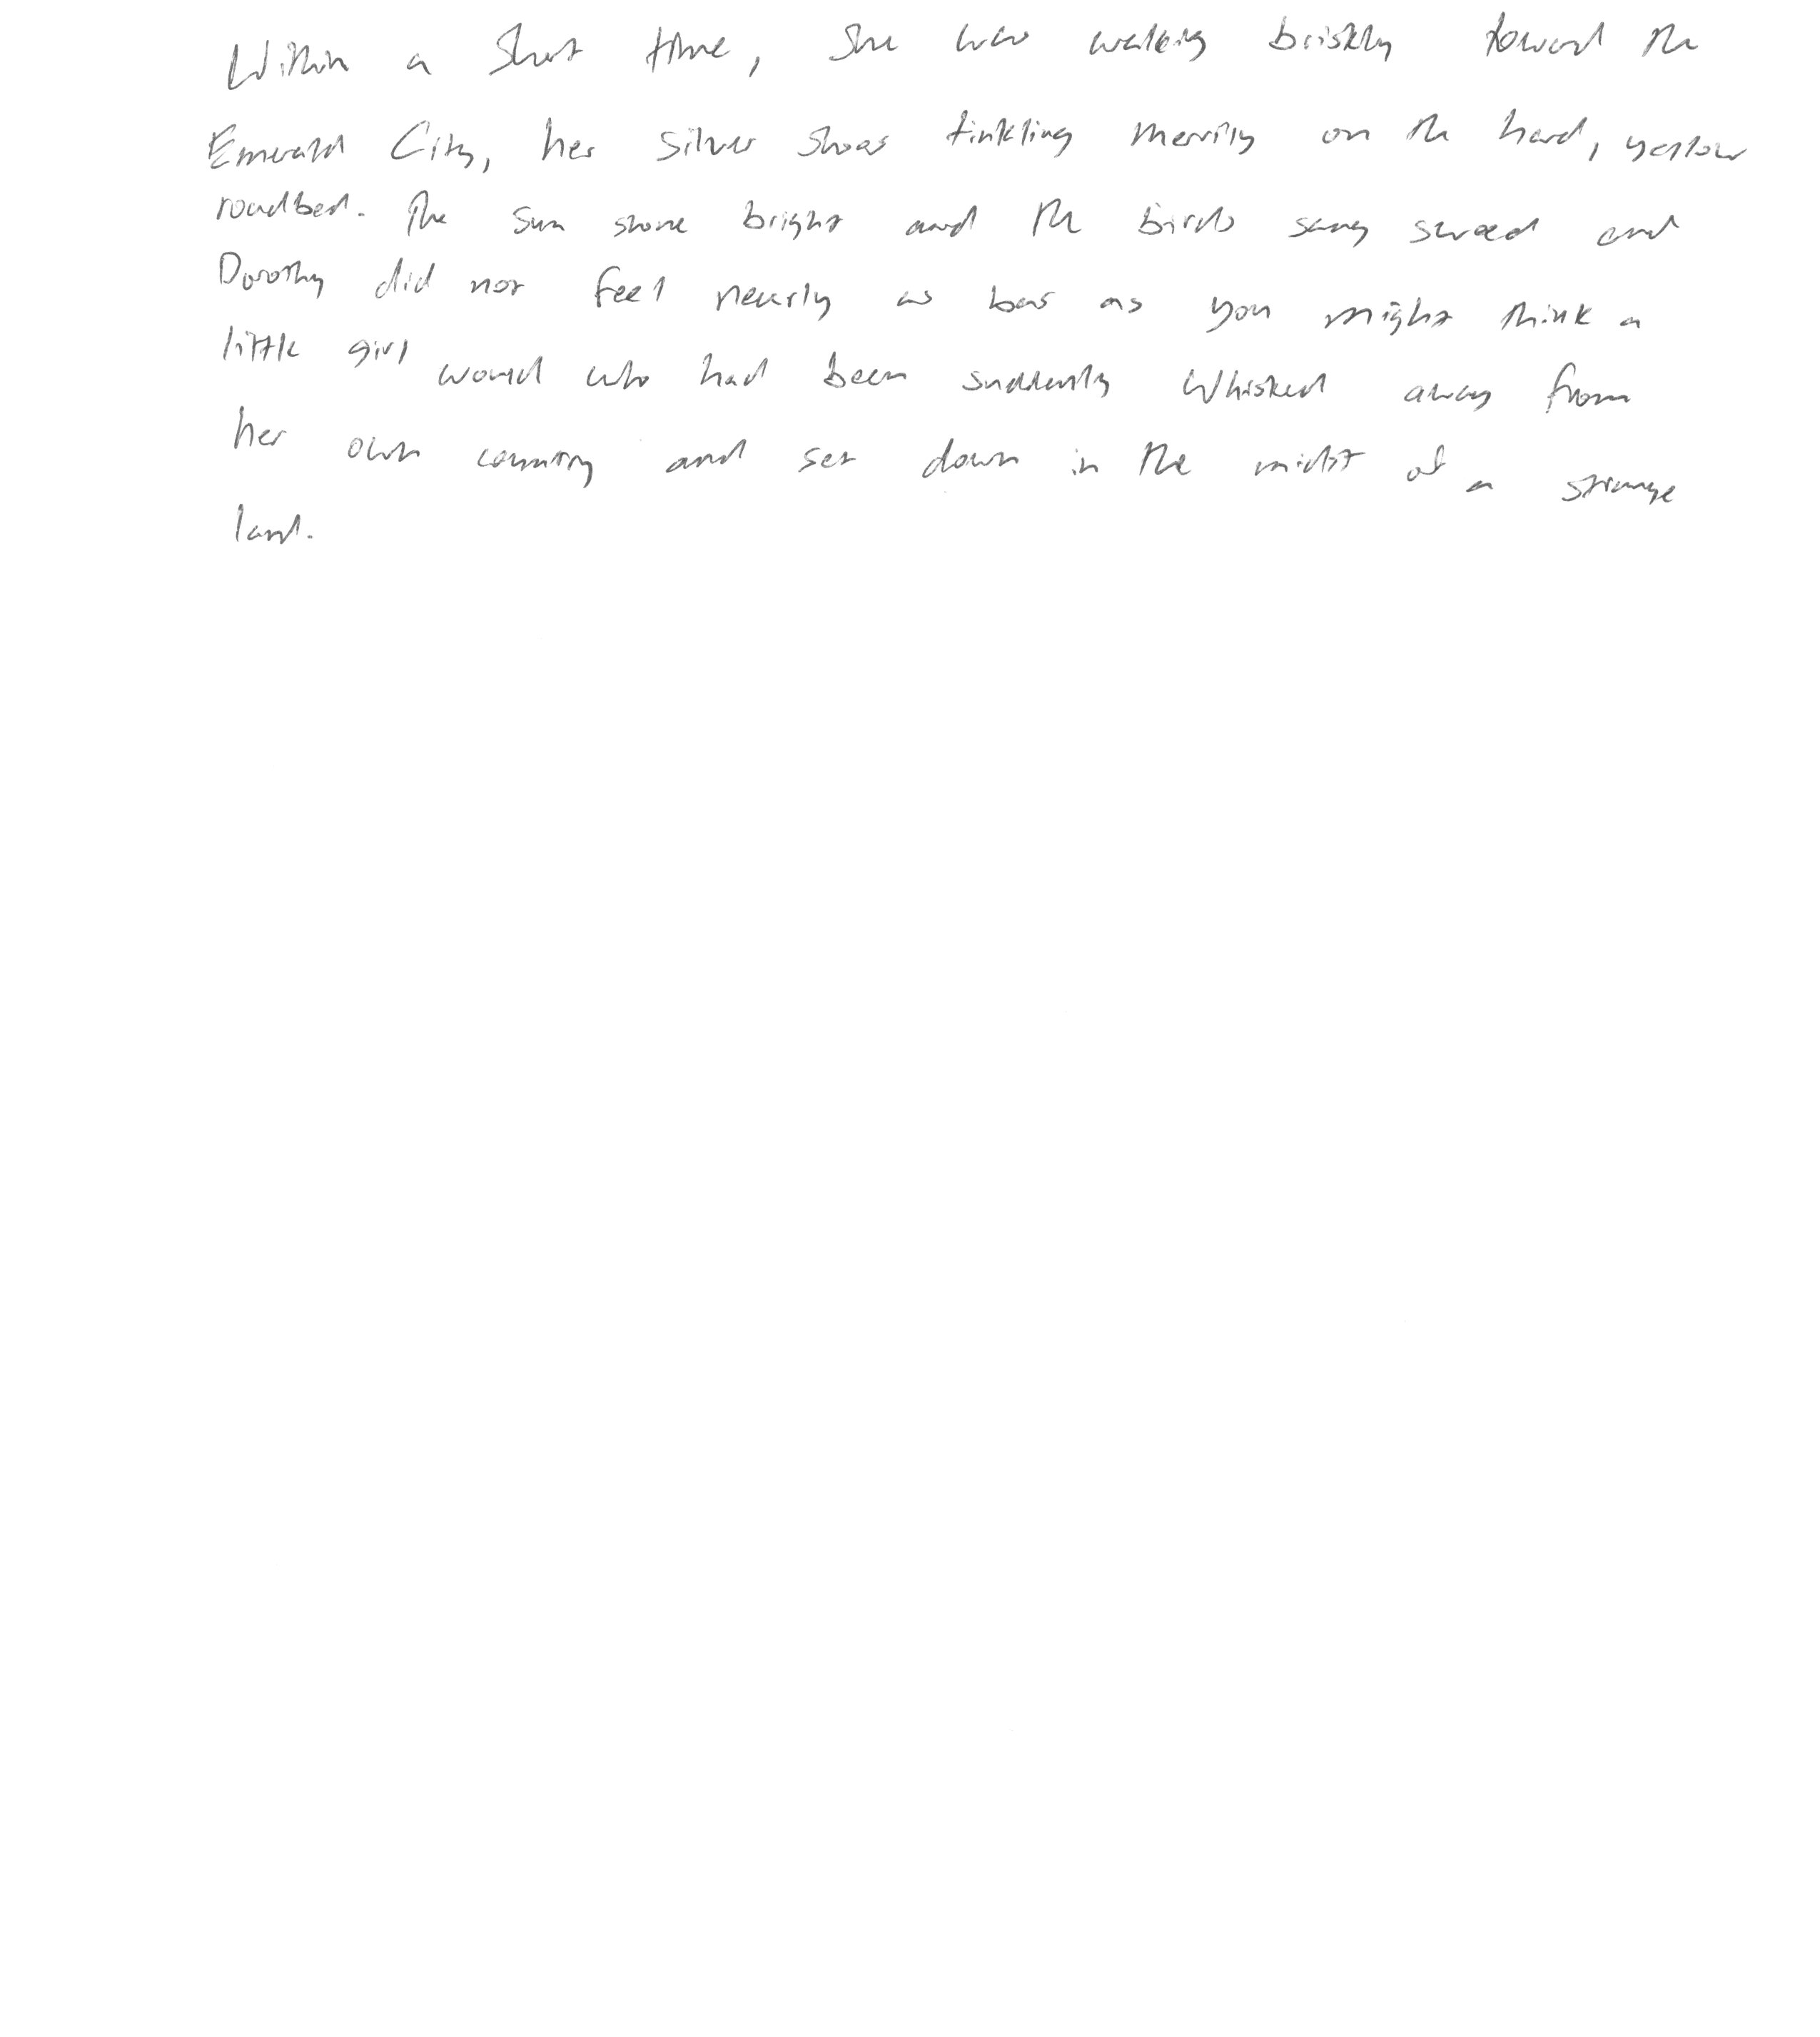 Within a short time, she was walking briskly toward the
Emerald City, her silver shoes tinkling merrily on the hard, yellow
roadbed. The sun shone bright and the birds sang sweet and
Dorothy did not feel nearly as bas as you might think a
little girl would who had been suddenly whisked away from
her own country and set down in the midst of a strange
land.